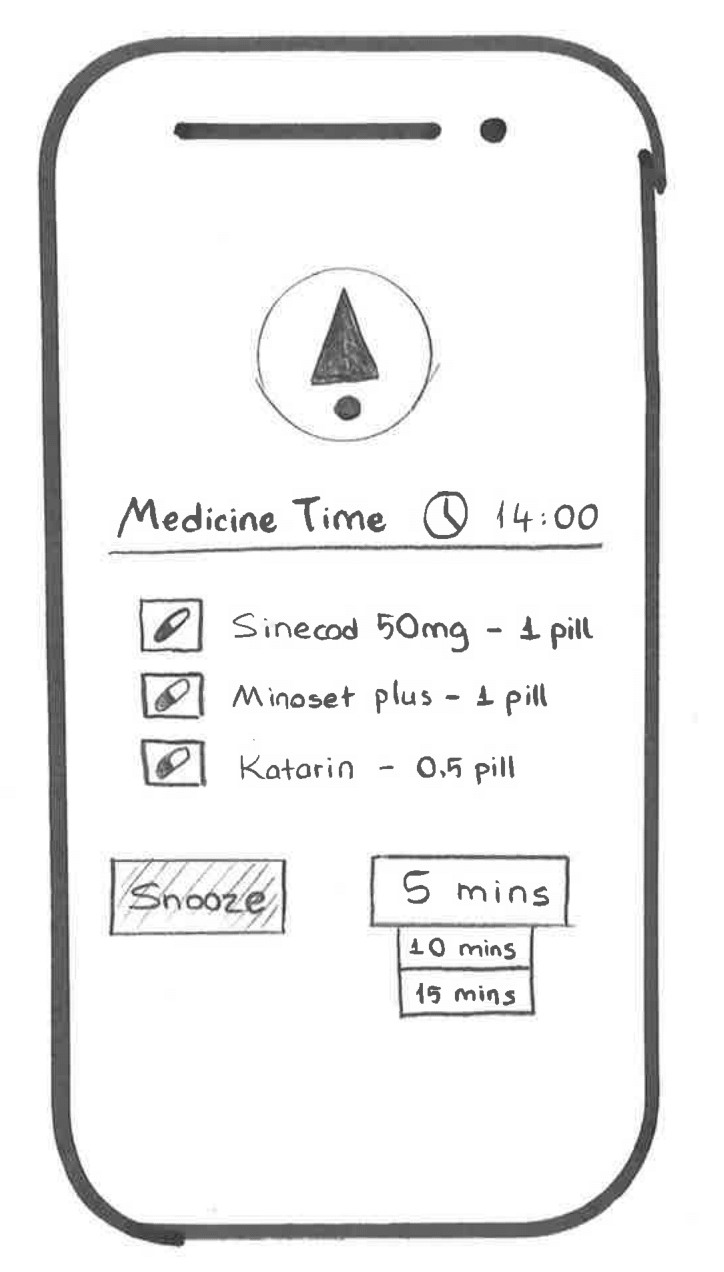 Medicine Time 14:00
Sinecod 50mg - 1 pill
Minoset plus - 1 pill
Katarin - 0,5 pill
Snooze
5 mins
10 mins
15 mins